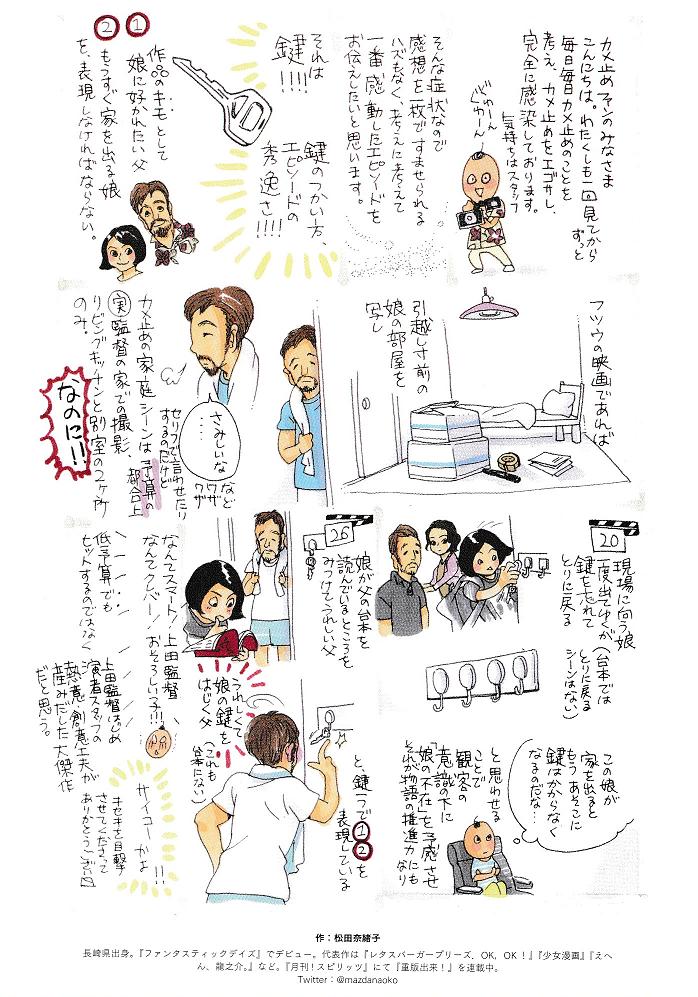 カメ止めファンのみなさま
こんにちは。わたくしも一回見てから
ずっと
毎日毎日カメ止めのことを
考え、カメ止めをエゴサし、
完全に感染しております。
気持ちはスタッフ
じゅーん
くわーん
そんな症状なので
感想を一枚ですませられる
ハズもなく、考えに考えて
一番感動したエピソードを
お伝えしたいと思います。
それは
鍵!!!!
鍵のつかい方、
エピソードの
秀逸さ!!!!
作品のキモとして
① 娘に好かれたい父
② もうすぐ家を出る娘
を、表現しなければならない。
フツウの映画であれば
引越し寸前の
娘の部屋を
写し
さみしいな
……
などワザワザ
セリフで言わせたり
するのだけど
カメ止めの家庭シーンは予算の
都合上
実監督の家での撮影、
リビングキッチンと別室の2ヶ所
のみ。
なのに!!
20
現場に向う娘
一度出てゆくが
鍵を忘れて
とりに戻る
(台本では
とりに戻る
シーンはない)
この娘が
家を出ると
もうあそこに
鍵はかからなく
なるのだな…
と思わせる
ことで
観客の
意識の下に
「娘の不在」を予感させ
それが物語の推進力にもなり
26
娘が父の台本を
読んでいるところを
みつけてうれしい父
うれしくて
娘の鍵を
はじく父
(これも
台本にない)
と、鍵1つで①②を
表現している
なんてスマート!上田監督
なんてクレバー!おそろしい子!!!
低予算でも
ヒットするのではなく
上田監督はじめ
演者スタッフの
熱意・創意工夫が
産みだした大傑作
だと思う。
サイコーかよ
!!!
キセキを目撃
させてくださって
ありがとうございます
作：松田奈緒子
長崎県出身。『ファンタスティックデイズ』でデビュー。代表作は『レタスバーガープリーズ．OK，OK！』『少女漫画』『えへ
ん、龍之介。』など。『月刊！スピリッツ』にて『重版出来！』を連載中。
Twitter：@mazdanaoko